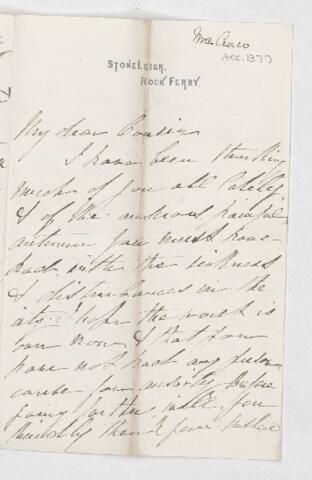 Mrs Craw
ACC.1377
STONELEIGH,
ROCK FERRY.
My dear Cousin
I have been thinking
much of you all lately
& of the anxious, painful
autumn you must have
had with the sickness
& disturbances in the
city. I hope the worst is
over now, & that you
have not had any
cause for anxiety
going further, will you
kindly thank your